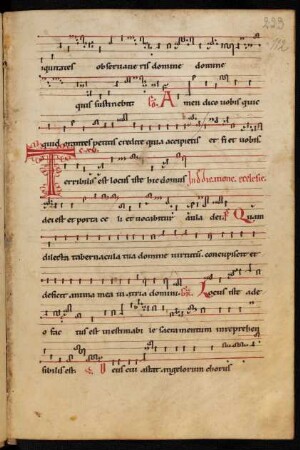 223
112
iquitates observaveris domine domine
quis sustinebit Co. Amen dico vobis quic
quid orantes petitis credite quia accipietis et fiet vobis
Terribilis est locus iste hic domus In dedicatione ecclesie
dei est et porta celi et vocabitur aula dei Ps. Quam
dilecta tabernacula tua domine virtutum concupiscit et
deficit anima mea in atria domini Gr. Locus iste a de
o factus est inestimabile sacramentum inreprehen
sibilis est V. Deus cui astat angelorum chorus